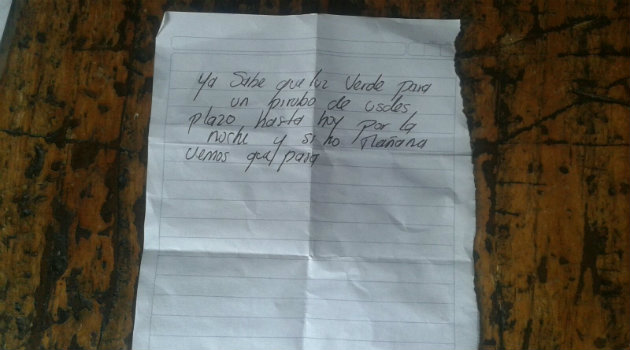 Ya Sabe que luz Verde para
un pirobo de usdes
plazo hasta hoy por la
noche y si no Mañana
vemos que pasa